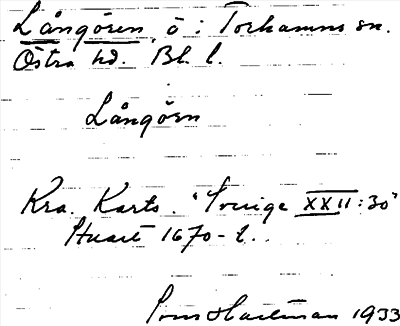 Långören, ö i Torhamns sn.
Östra hd. Bl. l.
Långörn
Kra. Kartv. "Sverige XXII:30"
1670-t.
Hartman 1933